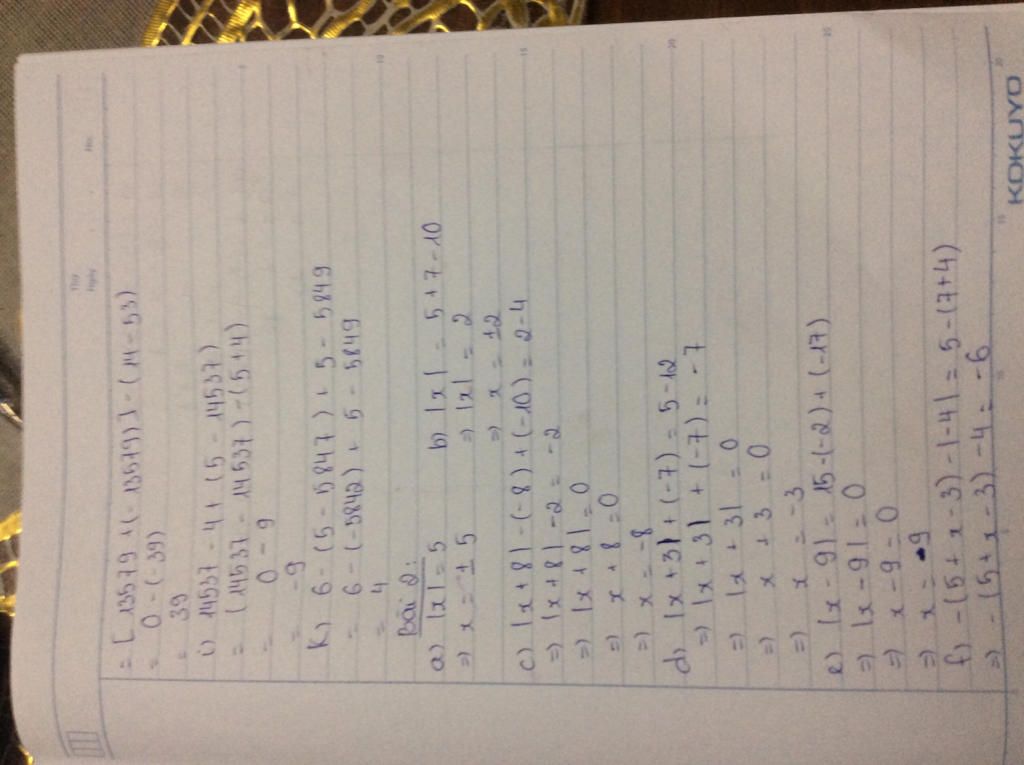 Thứ
Ngày
No.
= [13579 + (-13579)] - (14 - 53)
= 0 - (-39)
= 39
i) 14537 - 4 + (5 - 14537)
= (14537 - 14537) - (5 + 4)
= 0 - 9
= -9
k) 6 - (5 - 5847) + 5 - 5849
= 6 - (-5842) + 5 - 5849
= 4
Bài 2:
a) |x| = 5 b) |x| = 5 + 7 - 10
=> x = ± 5 => |x| = 2
=> x = ±2
c) |x + 8| - (-8) + (-10) = 2 - 4
=> |x + 8| - 2 = -2
=> |x + 8| = 0
=> x + 8 = 0
=> x = -8
d) |x + 3| + (-7) = 5 - 12
=> |x + 3| + (-7) = -7
=> |x + 3| = 0
=> x + 3 = 0
=> x = -3
e) |x - 9| = 15 - (-2) + (-17)
=> |x - 9| = 0
=> x - 9 = 0
=> x = 9
f) -(5 + x - 3) - |-4| = 5 - (7 + 4)
=> -(5 + x - 3) - 4 = -6
KOKUYO